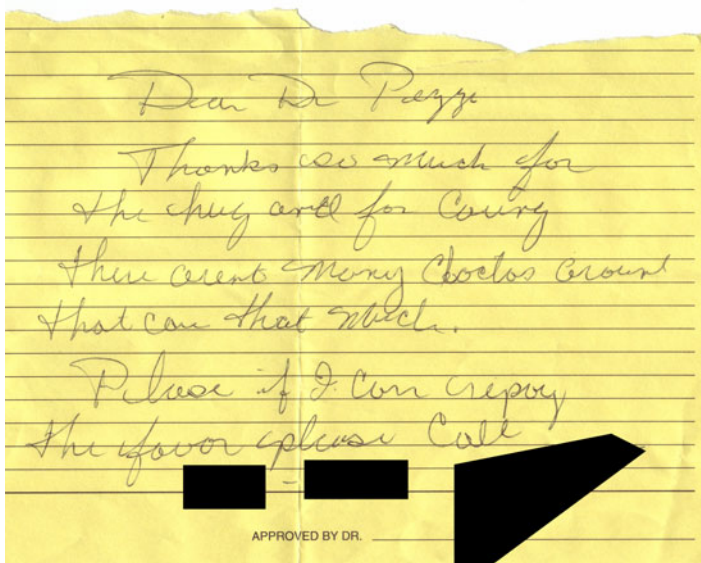 Dear Dr Pezzi
Thanks so much for
the hug and for Caring
there arent many doctos around
that care that much.
Please if I can repay
the favor please Call
-
APPROVED BY DR.